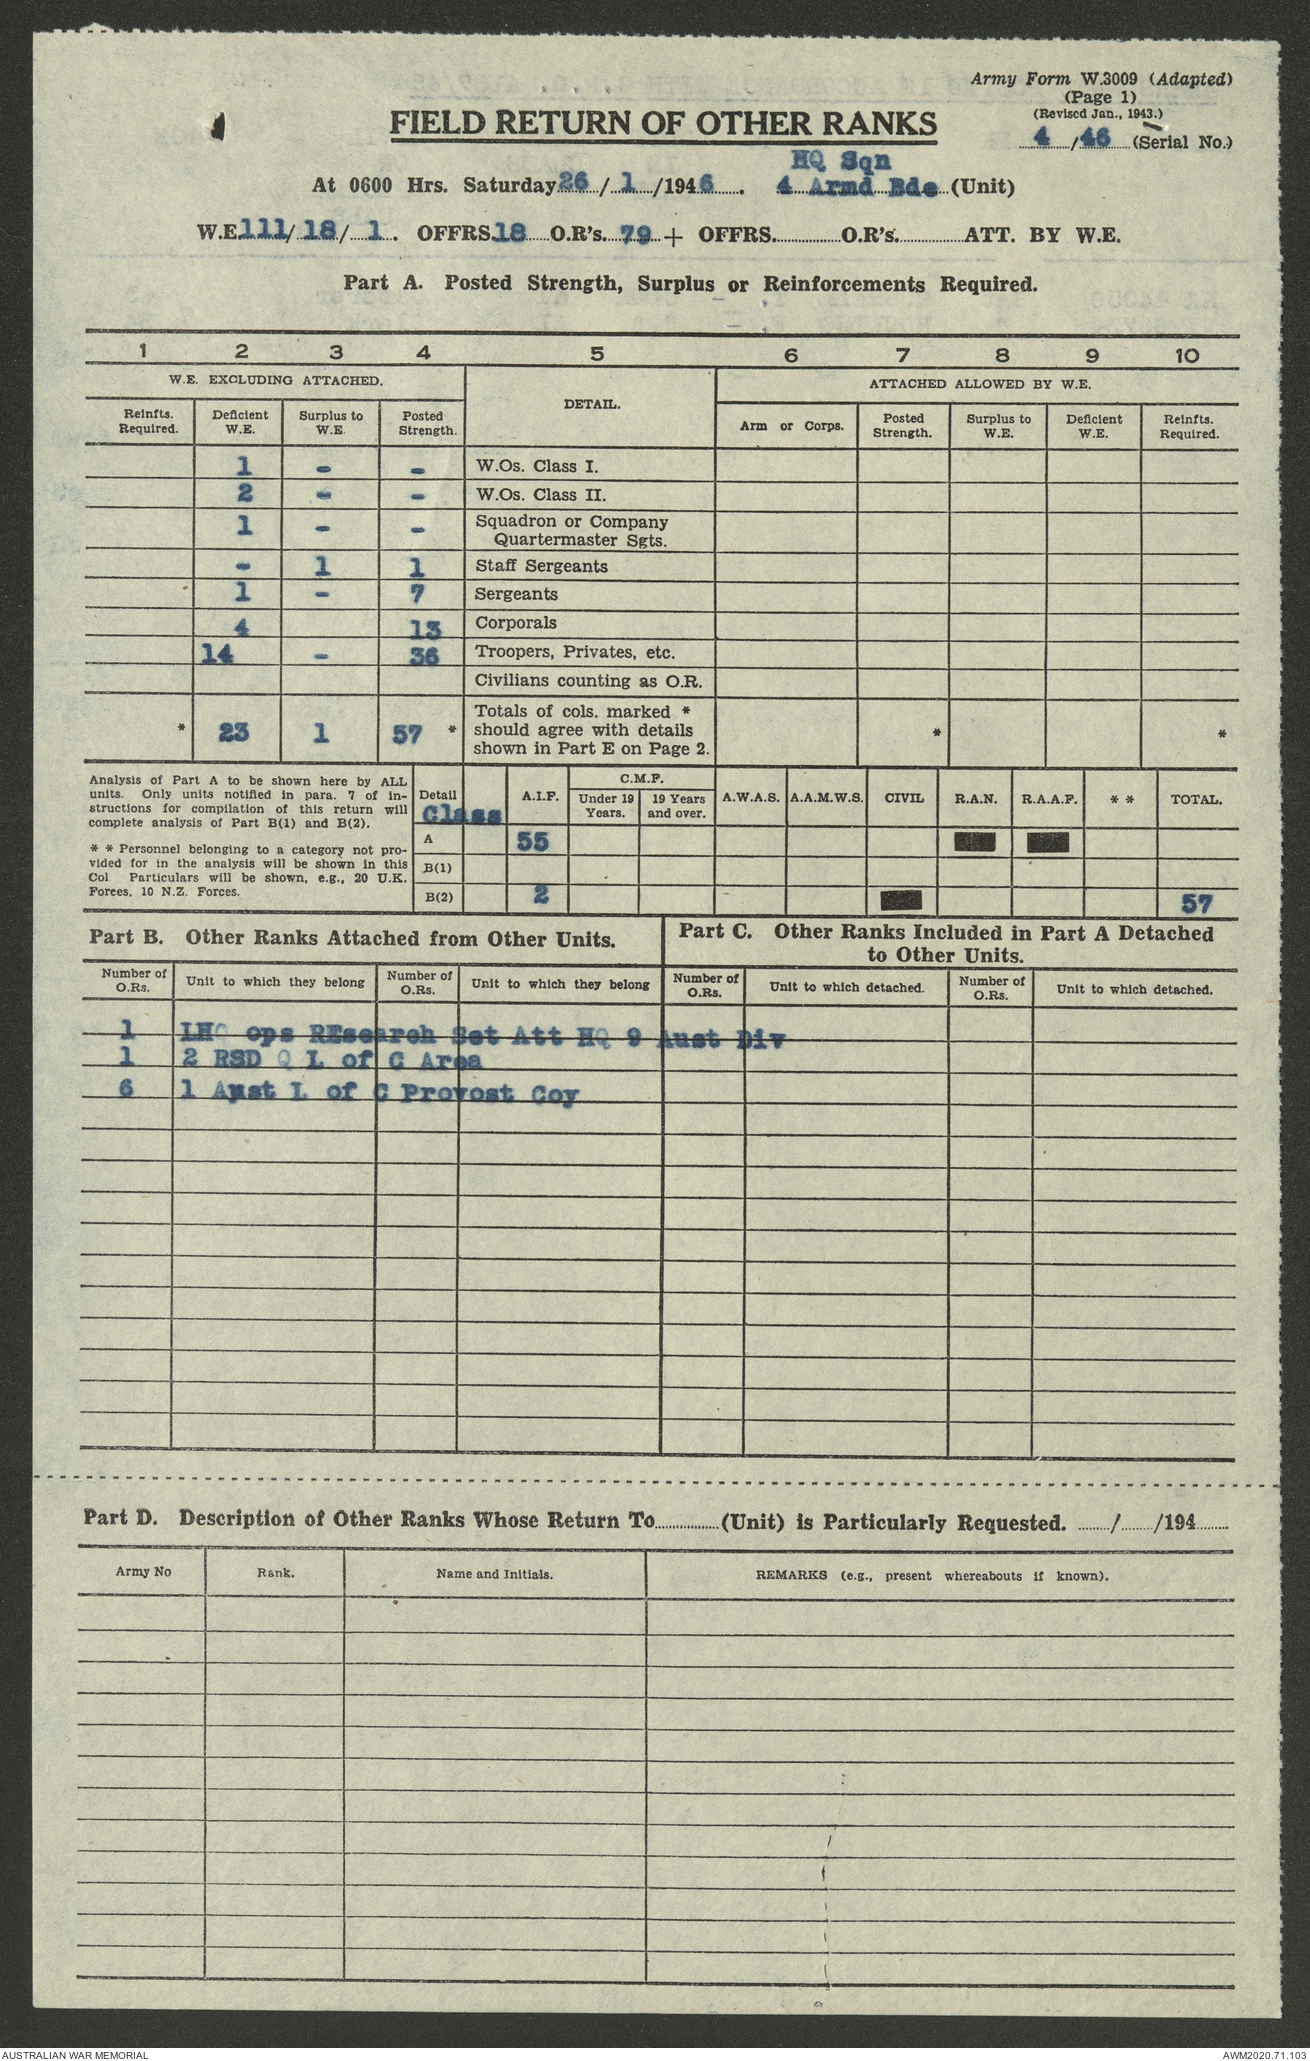 Army Form W.3009 (Adapted)
(Page 1)
(Revised Jan., 1943.)
4/46 (Serial No.)
FIELD RETURN OF OTHER RANKS
HQ Sqn
At 0600 Hrs. Saturday 26/1/1946. 4 Armd Bde (Unit)
W.E. 111/18/1. OFFRS. 18 O.R's. 79 + OFFRS. O.R's. ATT. BY W.E.
Part A. Posted Strength, Surplus or Reinforcements Required.
1 2 3 4 5 6 7 8 9 10
W.E. EXCLUDING ATTACHED. DETAIL. ATTACHED ALLOWED BY W.E.
Reinfts. Required. Deficient W.E. Surplus to W.E. Posted Strength. Arm or Corps. Posted Strength. Surplus to W.E. Deficient W.E. Reinfts. Required.
1 - - W.Os. Class I.
2 - - W.Os. Class II.
1 - - Squadron or Company
Quartermaster Sgts.
- 1 1 Staff Sergeants
1 - 7 Sergeants
4 13 Corporals
14 - 36 Troopers, Privates, etc.
Civilians counting as O.R.
Totals of cols. marked *
* 23 1 57 * should agree with details * *
shown in Part E on Page 2.
Analysis of Part A to be shown here by ALL
units. Only units notified in para. 7 of in-
structions for compilation of this return will
complete analysis of Part B(1) and B(2).
* * Personnel belonging to a category not pro-
vided for in the analysis will be shown in this
Col Particulars will be shown, e.g., 20 U.K.
Forces, 10 N.Z. Forces.
Detail A.I.F. C.M.F. Under 19 Years. 19 Years and over. A.W.A.S. A.A.M.W.S. CIVIL R.A.N. R.A.A.F. * * TOTAL.
Class
A 55
B(1)
B(2) 2 57
Part B. Other Ranks Attached from Other Units.
Part C. Other Ranks Included in Part A Detached
to Other Units.
Number of O.Rs. Unit to which they belong Number of O.Rs. Unit to which they belong Number of O.Rs. Unit to which detached. Number of O.Rs. Unit to which detached.
1 LHQ ops REsearch Set Att HQ 9 Aust Div
1 2 RSD Q L of C Area
6 1 Aust L of C Provost Coy
Part D. Description of Other Ranks Whose Return To (Unit) is Particularly Requested. / /194
Army No Rank. Name and Initials. REMARKS (e.g., present whereabouts if known).
AUSTRALIAN WAR MEMORIAL AWM2020.71.103